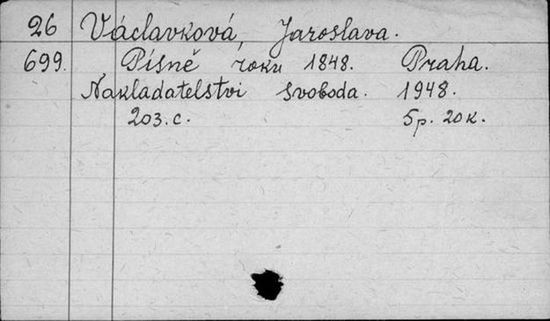 26 Václavková, Jaroslava.
699. Písně roku 1848. Praha.
Nakladatelstvi svoboda. 1948.
203.c. 5p. 20к.